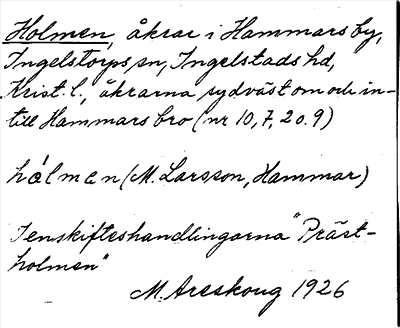 Holmen, åkrar i Hammars by,
Ingelstorps sn, Ingelstads hd,
Krist. l., åkrarna sydväst om och in-
till Hammars bro (nr 10, 7, 20. 9)
hålmen (M. Larsson, Hammar)
I enskifteshandlingarna "Präst-
holmen"
M. Areskoug 1926